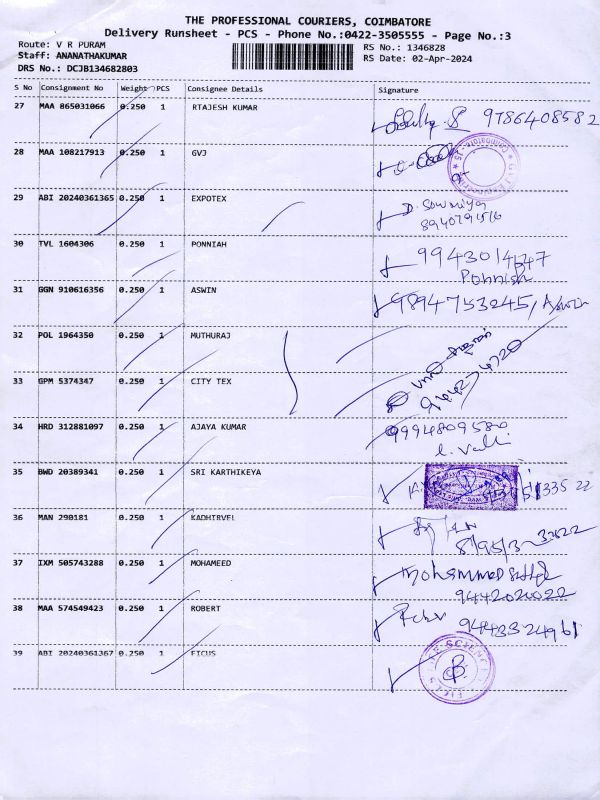 THE PROFESSIONAL COURIERS, COIMBATORE
Delivery Runsheet - PCS - Phone No.:0422-3505555 - Page No.:3
Route: V R PURAM
RS No.: 1346828
Staff: ANANATHAKUMAR
RS Date: 02-Apr-2024
DRS No.: DCJB134682803
S No Consignment No Weight PCS Consignee Details Signature
27 MAA 865031066 0.250 1 RTAJESH KUMAR
9786408582
28 MAA 108217913 0.250 1 GVJ
29 ABI 20240361365 0.250 1 EXPOTEX D. Sowmiya
30 TVL 1604306 0.250 1 PONNIAH
Ponnish
31 GGN 910616356 0.250 1 ASWIN 9894753245/Aswin
32 POL 1964350 0.250 1 MUTHURAJ
33 GPM 5374347 0.250 1 CITY TEX
34 HRD 312881097 0.250 1 AJAYA KUMAR 9994809580
L. Valli
35 BWD 20389341 0.250 1 SRI KARTHIKEYA
36 MAN 290181 0.250 1 KADHIRVEL
37 IXM 505743288 0.250 1 MOHAMEED Mohammed
9442020022
38 MAA 574549423 0.250 1 ROBERT
9443324961
39 ABI 20240361367 0.250 1 FICUS